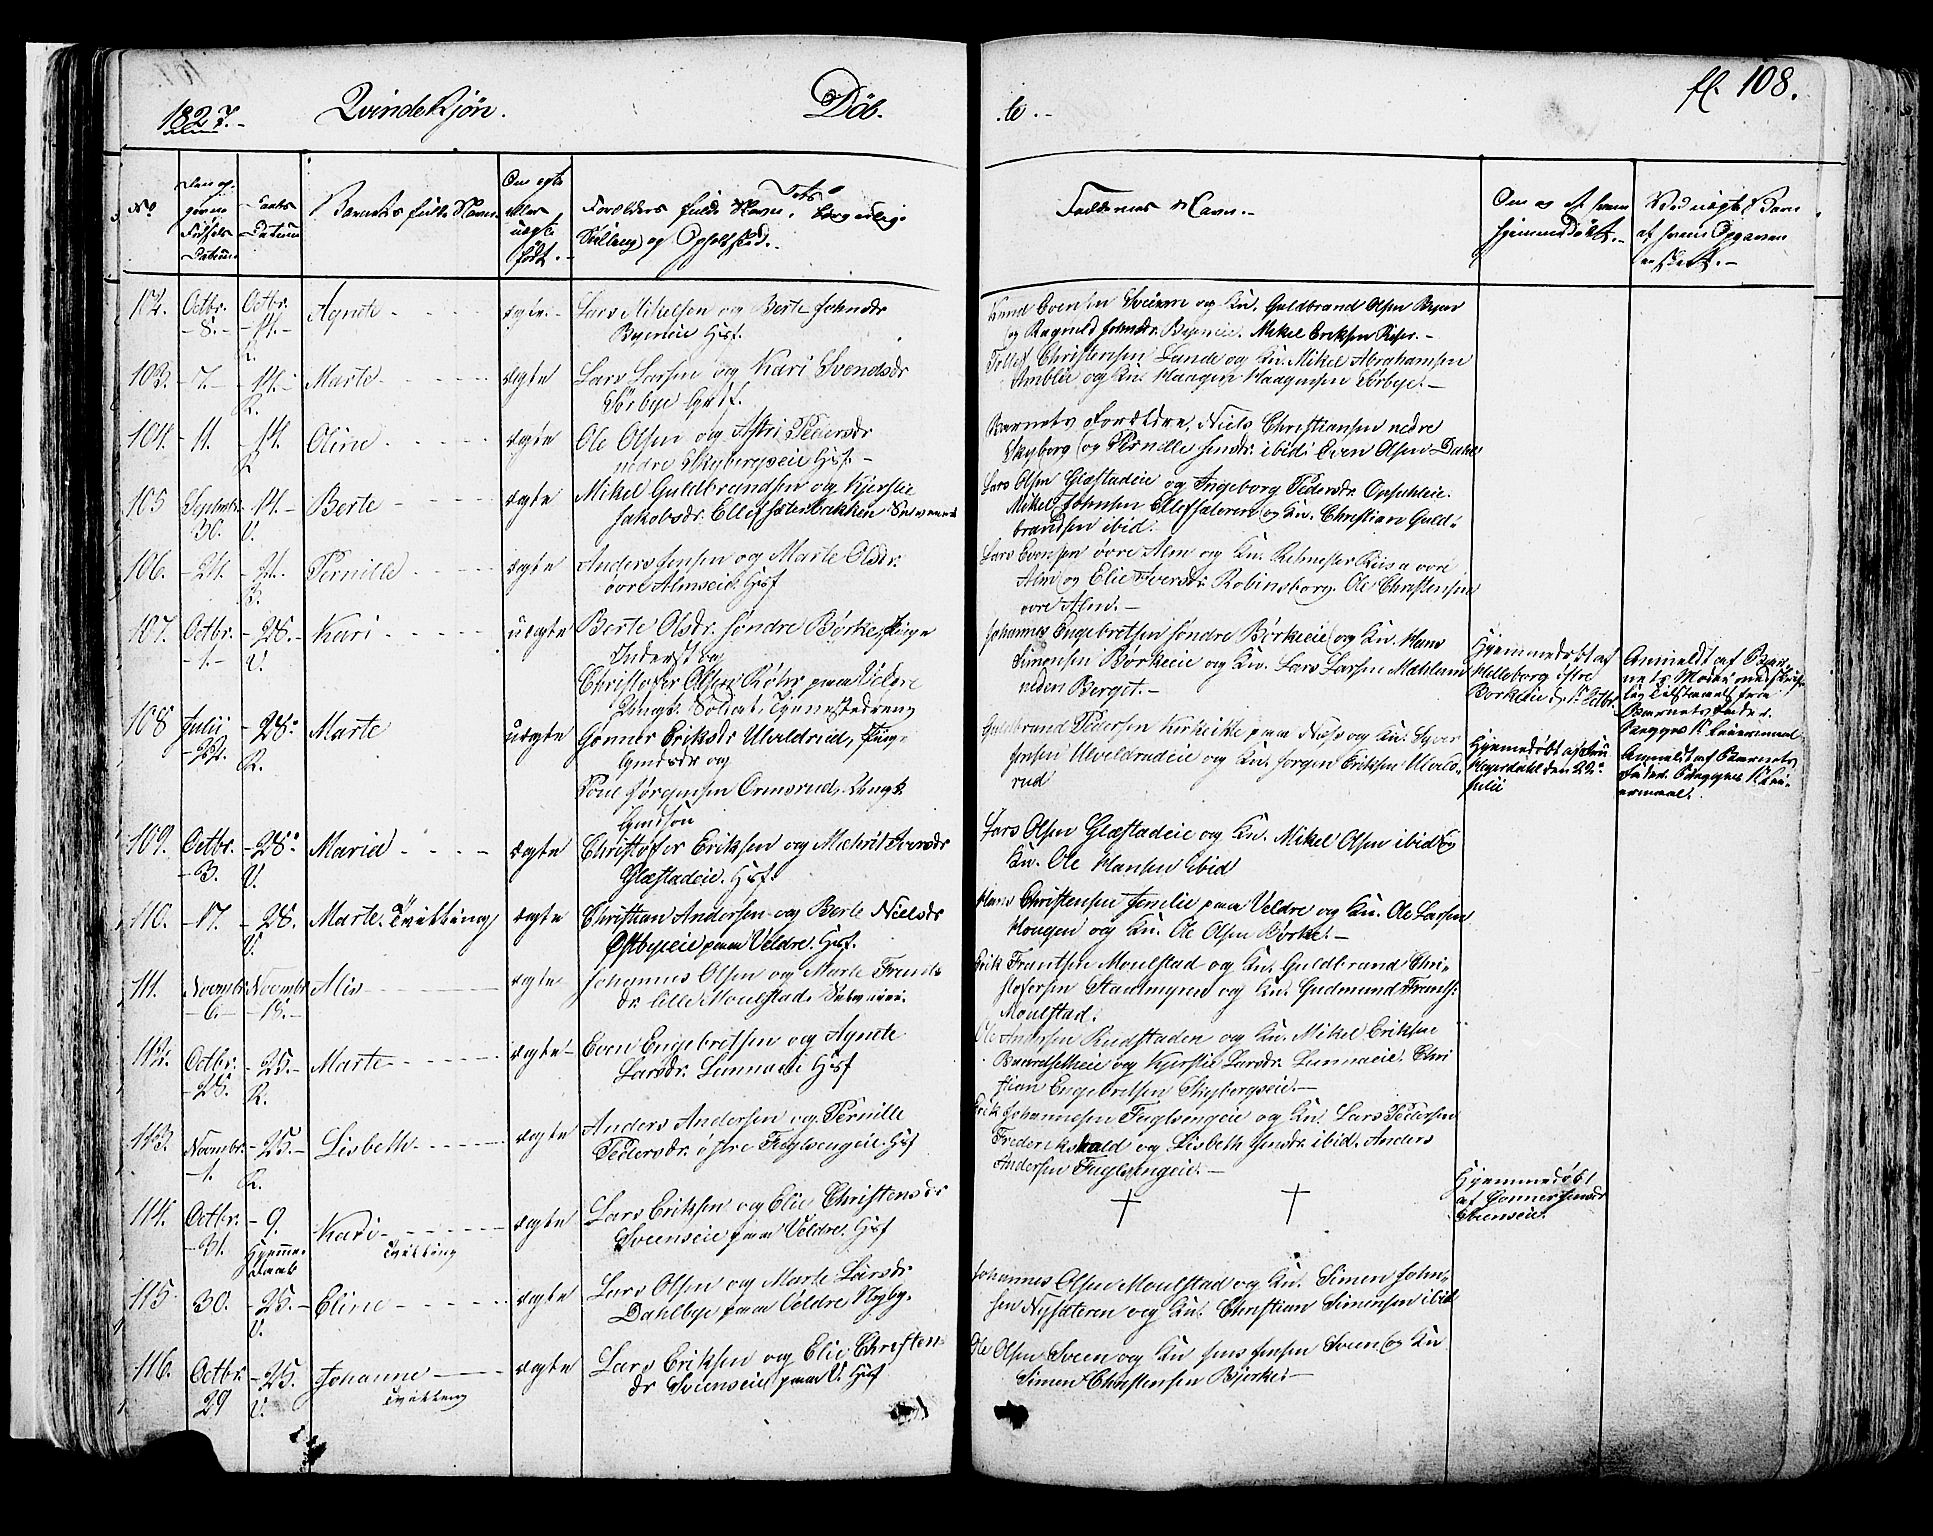 1827.- Qvindekjøn. Døb. te.- fl. 108.
No Den opgivne Fødsels Datum Daabs Datum Barnets fulde Navn. Om ægte eller uægte født.- Forældres fulde Navn, borgerlige Stilling og Opholdsted. Faddernes Navn.- Om og af hvem hjemmedøbt.- Ved uægte Barn af hvem Opgaven er skeet.-
102. Octbr. 8.- Octbr. 14.- R. Agnete ægte.- Lars Mikelsen og Berte Johnsdr
Byeneie Husf.
Knud Evensen og Km. Guldbrand Olsen
og Ragnild Johnsdr. Byeneie. Mikel Eriksen
103. -7.- -14.- R. Marte ægte Lars Larsen og Kari Svendsdr
Sørbye Husf.
Tollef Christensen Lunde og Km. Mikel Abrahamsen
og Km. Haagen Haagensen Sørbye.-
104. -11. -14. R. Oline ægte Ole Olsen og Astri Pedersdr
nedre Skybergseie Husf.-
Barnets Forældre, Niels Christiansen nedre
Skyberg og Pernille Jensdr. ibid. Even Olsen Dahle
105 Septembr. 30. -14.- V. Berte ægte Mikel Guldbrandsen og Kjerstie
Jakobsdr. Ellefsæterbakken
Lars Olsen Glæstadeie og Ingeborg Pedersdr.
Mikel Johnsen Ellefsæteren og Km. Christian Guld-
brandsen ibid.
106. -24. -21. B. Pernille ægte Anders Jensen og Marte Olsdr.
øvre Almseie. Husf
Lars Evensen øvre Alm og Km. Retmester øvre
Alm og Elie Iversdr. Robinsborg. Ole Christensen
øvre Alm.-
107. Octbr. -1.- -28.- V. Kari uægte Berte Olsdr. søndre Børke, Pige
Inderst og
Christofer Olsen paa Veldre
Ungk. Soldat, Tjenestedreng
Johannes Engebretsen søndre Børkeeie og Km. Hans
Simensen Børkeeie og Km. Lars Larsen Mæhlum
neden Berget.-
Hjemmedøbt af
østre
Børkeeie d. 1. Octbr.
Anmeldt af Bar-
nets Moder
Barnets Fader.
Begges 1. Leiermaal.
108 Julii 22. -28. R. Marte uægte Gonner Eriksdr Ulveldrud, Pige
og
Poul Jørgensen Ormsrud, Ungk.
Guldbrand Pedersen Kirkeikle paa Næs og Km. Syver
Jensen Ulveldrudeie og Km. Jørgen Eriksen Ulveld-
rud
Hjemmedøbt af
den 22.
Julii
Anmeldt af Barnets
Fader. Begges 1. Lei-
ermaal.
109. Octbr. -3. -28. V. Maria ægte Christofer Eriksen og Mæhrit Iversdr
Glæstadeie. Husf.
Lars Olsen Glæstadeie og Km. Mikel Olsen ibid og
Km. Ole Hansen ibid
110. -17. -28. V. Marte. Tvilling ægte Christian Andersen og Berte Nielsdr
Østbyeeie paa Veldre. Husf.
Hans Christensen paa Veldre og Km. Ole Larsen
Haugen og Km. Ole Olsen Børke.-
111. Novembr. -6.- Novembr. -18.- ægte Johannes Olsen og Marte Frants-
dr. lille Moulstad.
Erik Frantsen Moulstad og Km. Guldbrand Chri-
stofersen Staalmyren og Km. Gudmund Frants.
Moulstad.
112. Octbr. -28. -25.- R. Marte ægte- Even Engebretsen og Agnete
Larsdr. Husf
Ole Andersen Rudstaden og Km. Mikel Eriksen
Baardsetheie og Kjerstie Larsdr. Chri
stian Engebretsen Skybergseie.-
113. Novembr. -1. -25.- R. Lisbeth ægte Anders Andersen og Pernille
Pedersdr. østre Fuglsengeie. Husf
Erik Johannesen Fuglsengeie og Km. Lars Pedersen
Frederikshald og Lisbeth ibid. Anders
Andersen Fuglsengeie.-
114. Octbr. -31. -9. Hjemme- daab Kari Tvilling ægte Lars Eriksen og Elie Christensdr
Sveenseie paa Veldre. Husf
† †
Hjemmedøbt
af Gonner Jensdr
Sveenseie.
115. 30. -25.- V. Eline ægte Lars Olsen og Marte Larsdr
Dahlbye paa Veldre Nyby.
Johannes Olsen Moulstad og Km. Simen John-
sen Nysæteren og Km. Christian Simensen ibid
116. Octbr. 29 -25. V. Johanne Tvilling ægte Lars Eriksen og Elie Christen-
dr Sveenseie paa V. Husf
Ole Olsen Sveen og Km Jens Jensen Sveen og Km
Simen Christensen Bjerke.-